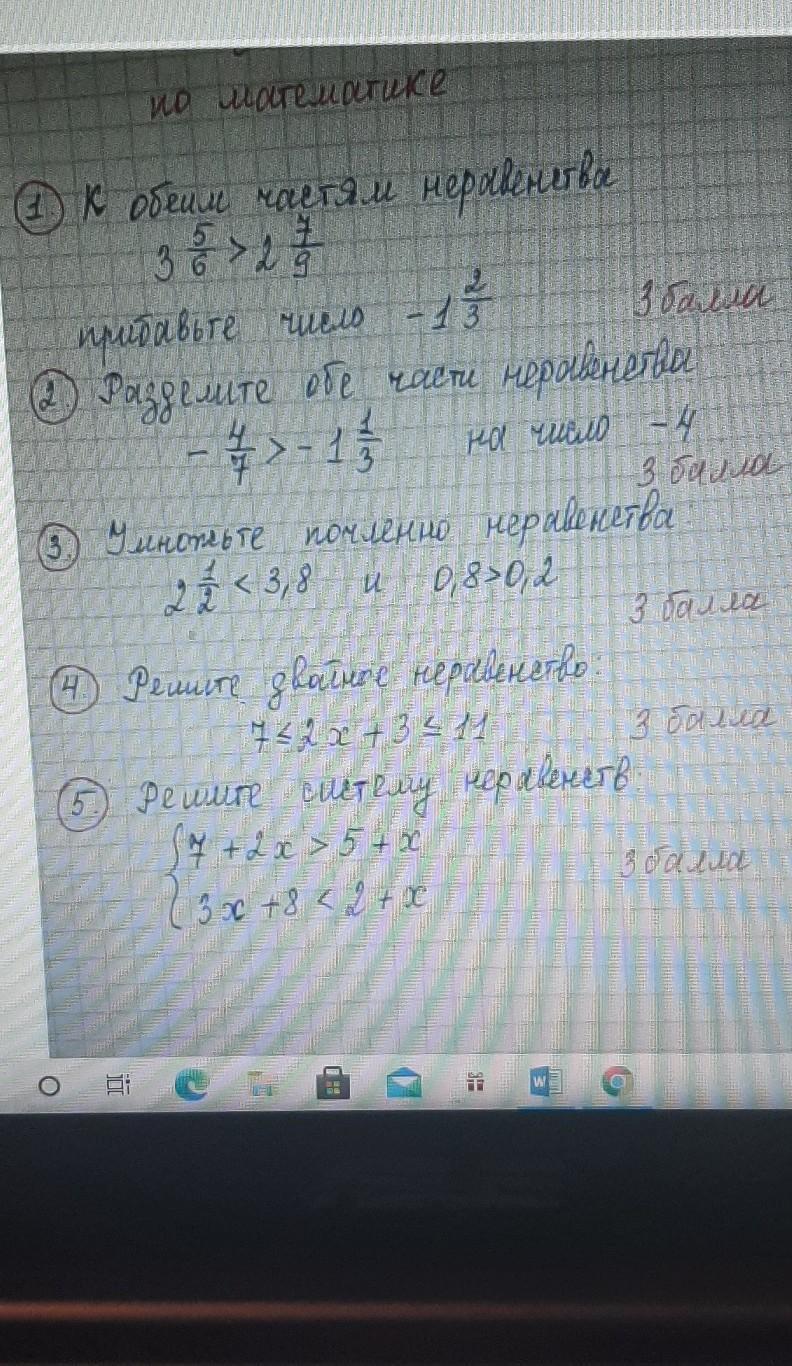 по математике
1. К обеим частям неравенства
3 5/6 > 2 7/9
прибавьте число -1 2/3 3 балла
2. Разделите обе части неравенства
- 4/7 > - 1 1/3 на число -4
3 балла
3. Умножьте почленно неравенства
2 1/2 < 3,8 и 0,8>0,2
3 балла
4. Решите двойное неравенство:
7 ≤ 2x + 3 ≤ 11 3 балла
5. Решите систему неравенств:
{ 7 + 2x > 5 + x
3 балла
3x + 8 < 2 + x
W